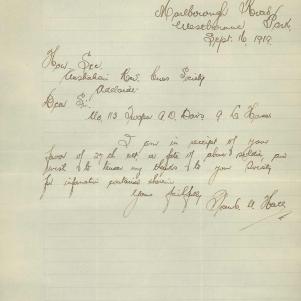 Marlborough Road
Westbourne Park
Sept. 16, 1919.
Hon. Sec.
Australian Red Cross Society
Adelaide
Dear Sir.
No. 113 Trooper A. D. Davis 9. L. Horse
I am in receipt of your
favor of 27th ult. re fate of above soldier and
wish to tender my thanks to your Society
for information contained therein
Yours faithfully
Frank A